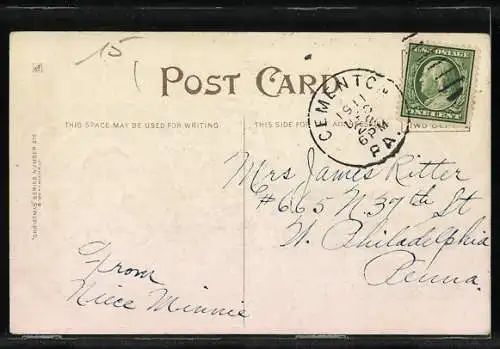 15
POST CARD
THIS SPACE MAY BE USED FOR WRITING
THIS SIDE
CEMENTO
PA.
6 PM
ONE CENT
Mrs James Ritter
#665 N 37th St
W. Philadelphia
Penna.
From
Niece Minnie
"CHRISTMAS" SERIES NUMBER